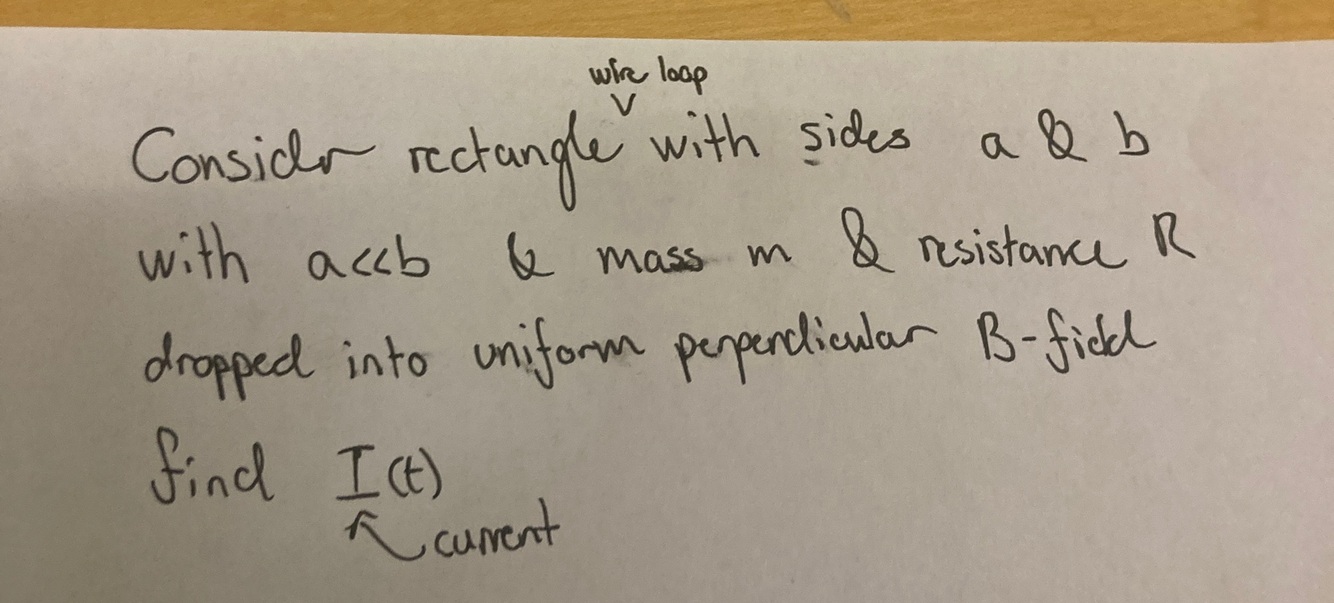 wire loop
Consider rectangle with sides a & b
with a<<b & mass m & resistance R
dropped into uniform perpendicular B-field
find I(t)
current